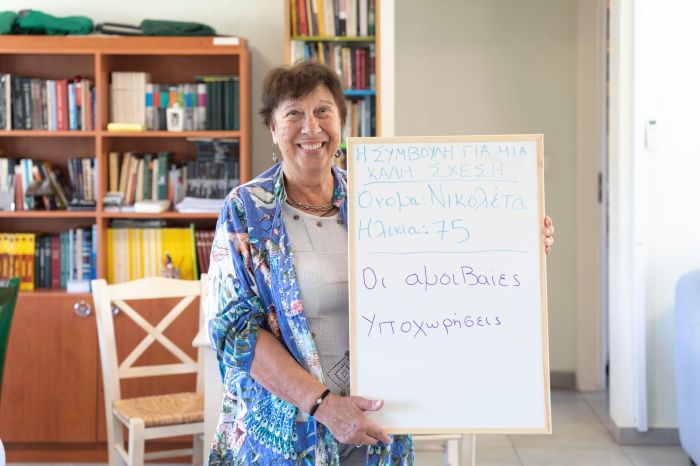 Η ΣΥΜΒΟΥΛΗ ΓΙΑ ΜΙΑ
ΚΑΛΗ ΣΧΕΣΗ
Όνομα: Νικολέτα
Ηλικια: 75
Οι αμοιβαιες
Υποχωρήσεις